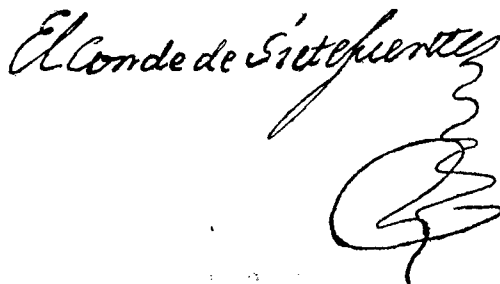 El Conde de Sietefuentes